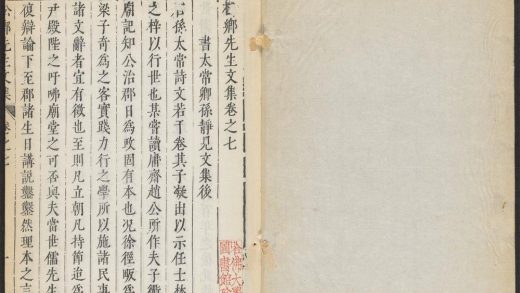 鄉先生文集卷之七
書太常卿孫靜見文集後
孫太常詩文若干卷其子凝出以示任士林
之梓以行世也某嘗讀庸齋趙公所作夫子衢
廟記知公治郡日為政固有本也況徐徑畈為
梁子奇為之客實踐力行之學所以施諸民事
諸文辭者宜有徵也至則凡立朝凡持節迨
尹殿陛之吁咈廟堂之可否與夫當世儒先生
復辯論下至郡諸生日講說亹亹然理本之
鄉先生文集 卷之七 一
哈佛大
圖書館